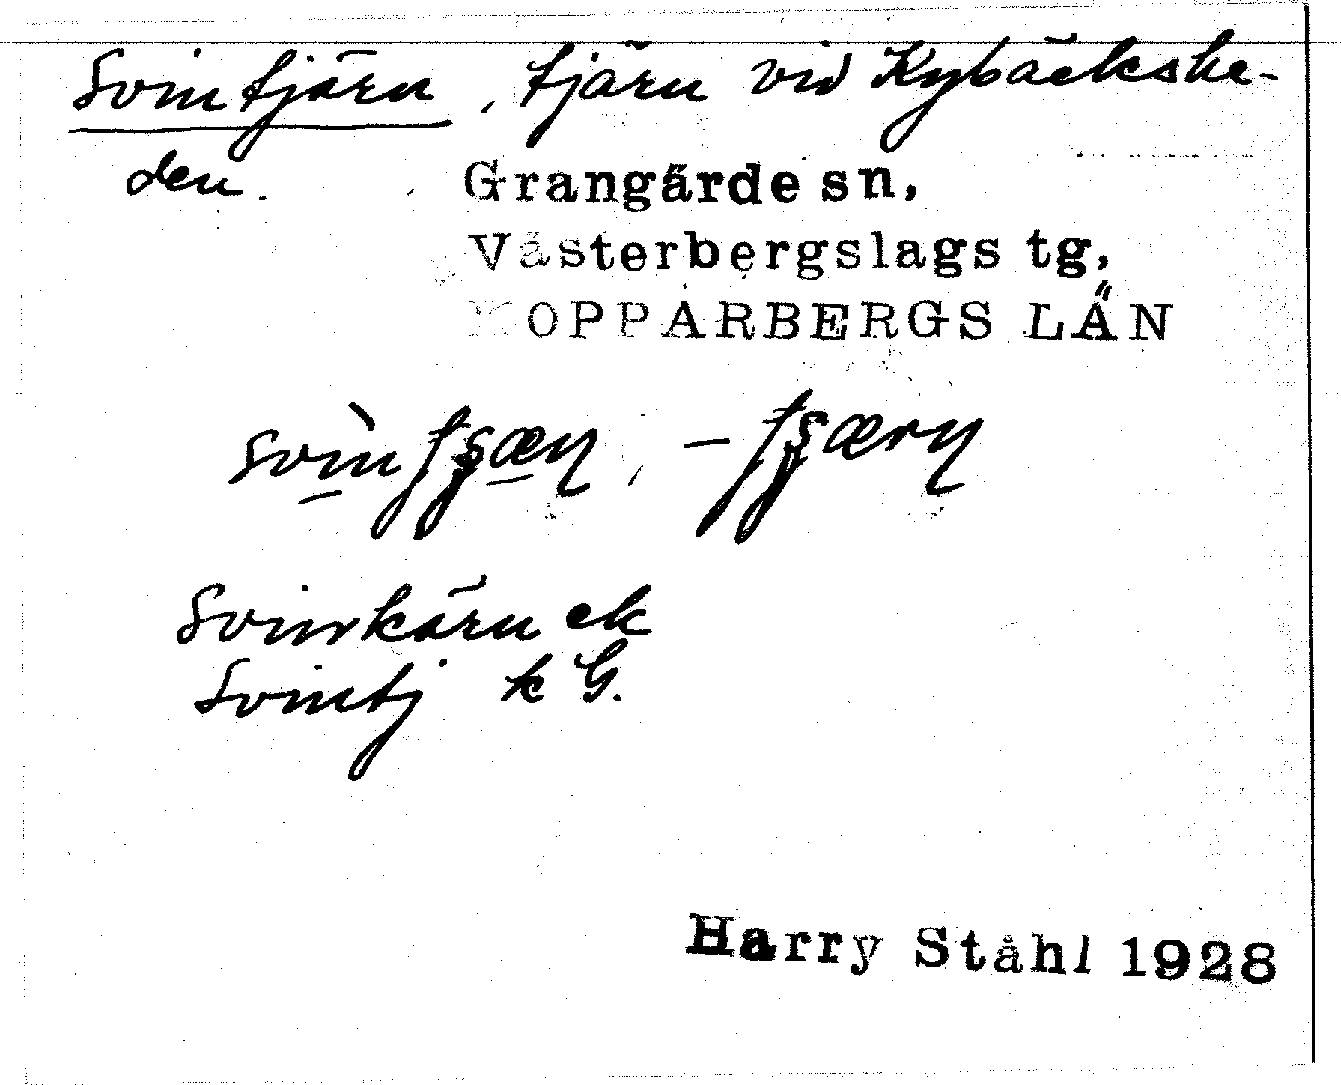 Svintjärn, tjärn vid Kybäckshe-
den.
Grangärde sn,
Västerbergslags tg,
KOPPARBERGS LÄN
Svinkärn ek
Svintj k G.
Harry Ståhl 1928